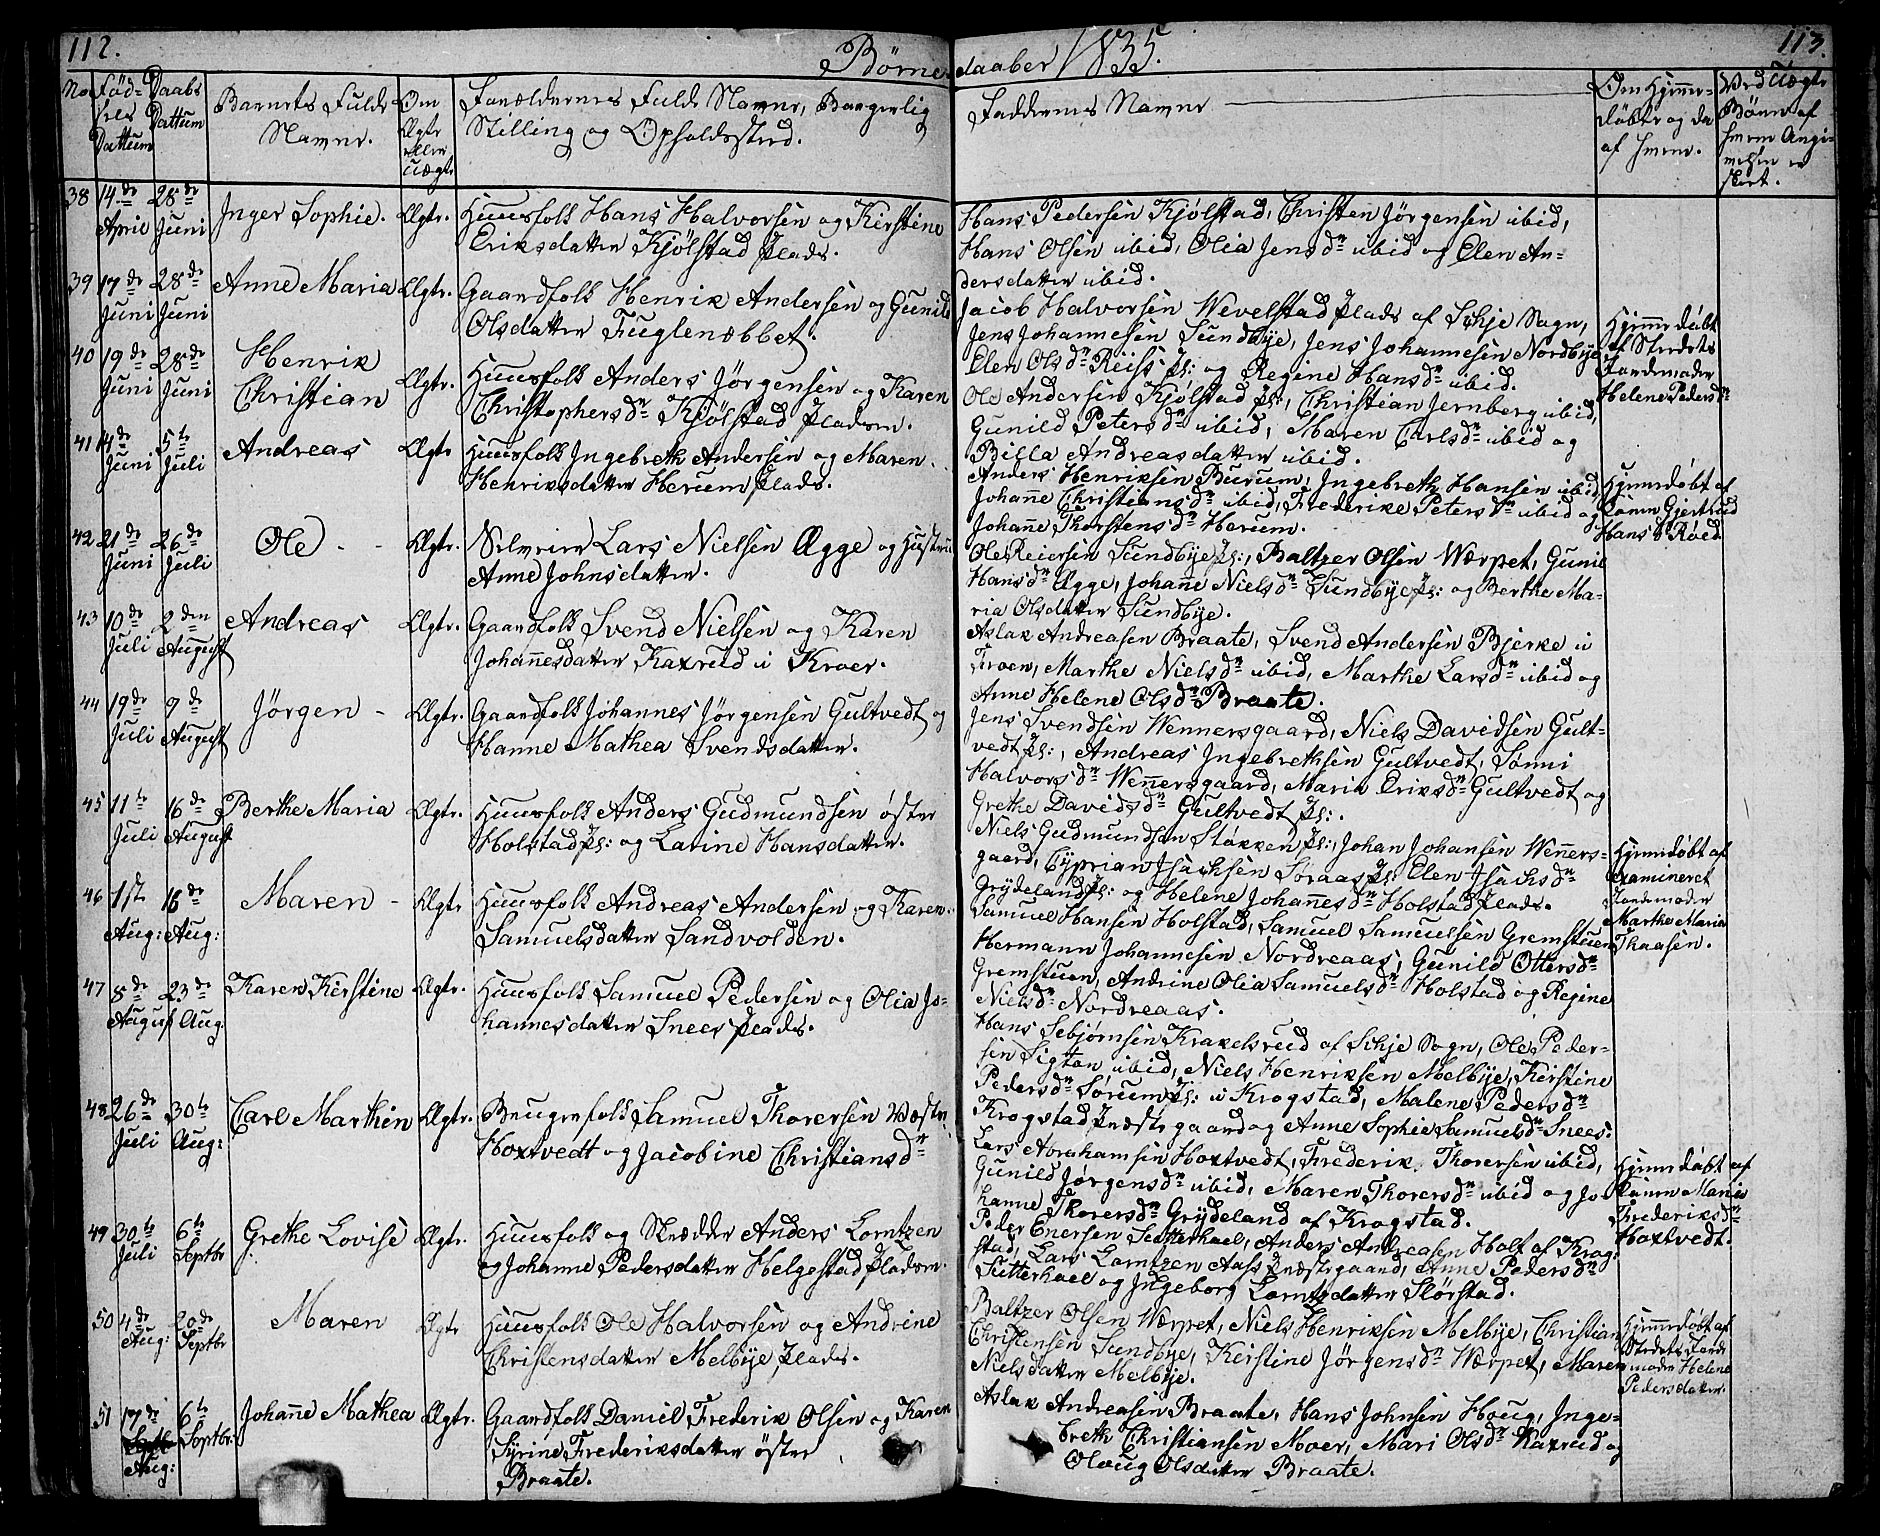 112.
Børne
daaber 1835.
113.
No
Fød-
sels
Dattum
Daabs
Dattum
Barnets Fulde
Navne.
Om
Ægte
eller
Uægte
Forældrenes Fulde Navne, Borgerlig
Stilling og Opholdssted.
Faddernes Navne
Om Hjemme-
døbte og da
af hvem.
Ved Uægte
Børn af
hvem Angi-
velsen er
skeet.
38 14de April 28de Juni Inger Sophie. Ægte. Huusfolk Hans Halvorsen og Kirstine
Eriksdatter Kjølstad Plads.
Hans Pedersen Kjølstad, Christen Jörgensen ibid,
Hans Olsen ibid, Olia Jensdr ibid og Elen An-
dersdatter ibid.
39 17de Juni 28de Juni Anne Maria Ægte. Gaardfolk Henrik Andersen og Gunild
Olsdatter Fuglenæbbet.
Jacob Halvorsen Wevelstad Plads af Schje Sogn,
Jens Johannesen Sundbye, Jens Johannesen Nordbye
Elen Olsdr Reiss Pl: og Regine Hansdr ibid.
Hjemmedøbt
af Stedets
Jordemoder
Helene Pedersdr
40 19de Juni 28de Juni Henrik
Christian Ægte. Huusfolk Anders Jörgensen og Karen
Christophersdr Kjölstad Pladsen.
Ole Andersen Kjølstad Pl:, Christian Jernberg ibid,
Gunild Petersdr ibid, Maren Carlsdr ibid og
Billa Andreasdatter ibid.
41 14de Juni 5te Juli Andreas Ægte Huusfolk Ingebreth Andersen og Maren
Henriksdatter Herum Plads.
Anders Henriksen Burum, Ingebreth Hansen ibid,
Johanne Christiansdr ibid, Frederike Petersdr ibid og
Johanne Thorstensdr Herum.
Hjemmedøbt af
Konen Gjertrud
Hansdr Røed
42 21de Juni 26de Juli Ole Ægte. Selveier Lars Nielsen Ægge og Hustru
Anne Johnsdatter.
Ole Reiersen Sundbye Pl:, Baltzer Olsen Værpet, Gunil
Hansdr Ægge, Johanne Nielsdr Sundbye Pl: og Berthe Ma-
ria Olsdatter Sundbye.
43 10de Juli 2den August Andreas Ægte. Gaardfolk Svend Nielsen og Karen
Johannesdatter Kaxrud i Kroer.
Aslak Andreasen Braate, Svend Andersen Bjerke i
Froen, Marthe Nielsdr ibid, Marthe Larsdr ibid og
Anne Helene Olsdr Braate.
44 19de Juli 9de August Jörgen Ægte. Gaardfolk Johannes Jörgensen Gultvedt og
Hanne Mathea Svendsdatter.
Jens Svendsen Wennersgaard, Niels Davidsen Gult-
vedt Pl:, Andreas Ingebrethsen Gultvedt, Sönni
Halvorsdr Wennersgaard, Maria Eriksdr Gultvedt og
Grethe Davidsdr Gultvedt Pl:.
45 11te Juli 16de August Berthe Maria Ægte. Huusfolk Anders Gudmundsen öster
Holstad Pl: og Larine Hansdatter.
Niels Gudmundsen Støkken Pl:, Johan Johansen Wenners-
gaard, Cyprian Isachsen Soraas Pl: Elen Isachsdr
Grydeland Pl: og Helene Johannesdr Holstad Plads.
Hjemmedøbt af
examineret
Jordemoder
Marthe Maria
Thaasen.
46 1ste Aug: 16de Aug: Maren Ægte Huusfolk Andreas Andersen og Karen
Samuelsdatter Sandvolden.
Samuel Hansen Holstad, Samuel Samuelsen Gremstuen
Hermann Johannesen Nordreaas, Gunild Ottersdr
Gremstuen, Andrine Olia Samuelsdr Holstad og Regine
Nielsdr Nordreaas.
47 8de August 23de Aug: Karen Kirstine Ægte. Huusfolk Samuel Pedersen og Olia Jo-
hannesdatter Snees Plads.
Hans Sebjørnsen Kraxelsrud af Schje Sogn, Ole Peder-
sen Sigten ibid, Niels Henriksen Melbye, Kirstine
Pedersdr Sørum Pl: i Krogstad, Malene Pedersdr
Krogstad Præstegaard og Anne Sophie Samuelsdr Snees.
48 26de Juli 30te Aug: Carl Marthin Ægte. Brugerfolk Samuel Thorersen Vestre
Hoxtvedt og Jacobine Christiansdr
Lars Abrahamsen Hoxtvedt, Frederik Thorersen ibid,
Gunild Jørgensdr ibid, Maren Thorersdr ibid og Jo
hanne Thorersdr Grydeland af Krogstad.
Hjemmedøbt af
Konen Maria
Frederiksdr
Hoxtvedt.
49 30te Juli 6te Septbr Grethe Lovise Ægte. Huusfolk og Skrædder Anders Lorntzen
og Johanne Pedersdatter Helgestad Pladsen.
Peder Enersen Sutterhael, Anders Andreasen Holt af Krog-
stad, Lars Lorntzen Aass Præstegaard, Anne Pedersdr
Sutterhael og Ingeborg Lorntzdatter Slørstad.
50 4de Aug: 20de Septbr Maren Ægte Huusfolk Ole Halvorsen og Andrine
Christensdatter Melbye Plads.
Baltzer Olsen Værpet, Niels Henriksen Melbye, Christian
Christensen Sundbye, Kirstine Jörgensdr Værpet, Maren
Nielsdatter Melbye.
Hjemmedøbt af
Stedets Jorde
moder Helene
Pedersdatter.
51 17de Aug: 6te Septbr. Johanne Mathea Ægte. Gaardfolk Daniel Frederik Olsen og Karen
Syrine Frederiksdatter öster
Braate.
Aslak Andreasen Braate, Hans Johnsen Houg, Inge-
breth Christiansen Moer, Mari Olsdr Kaxrud og
Oloug Olsdatter Braate.